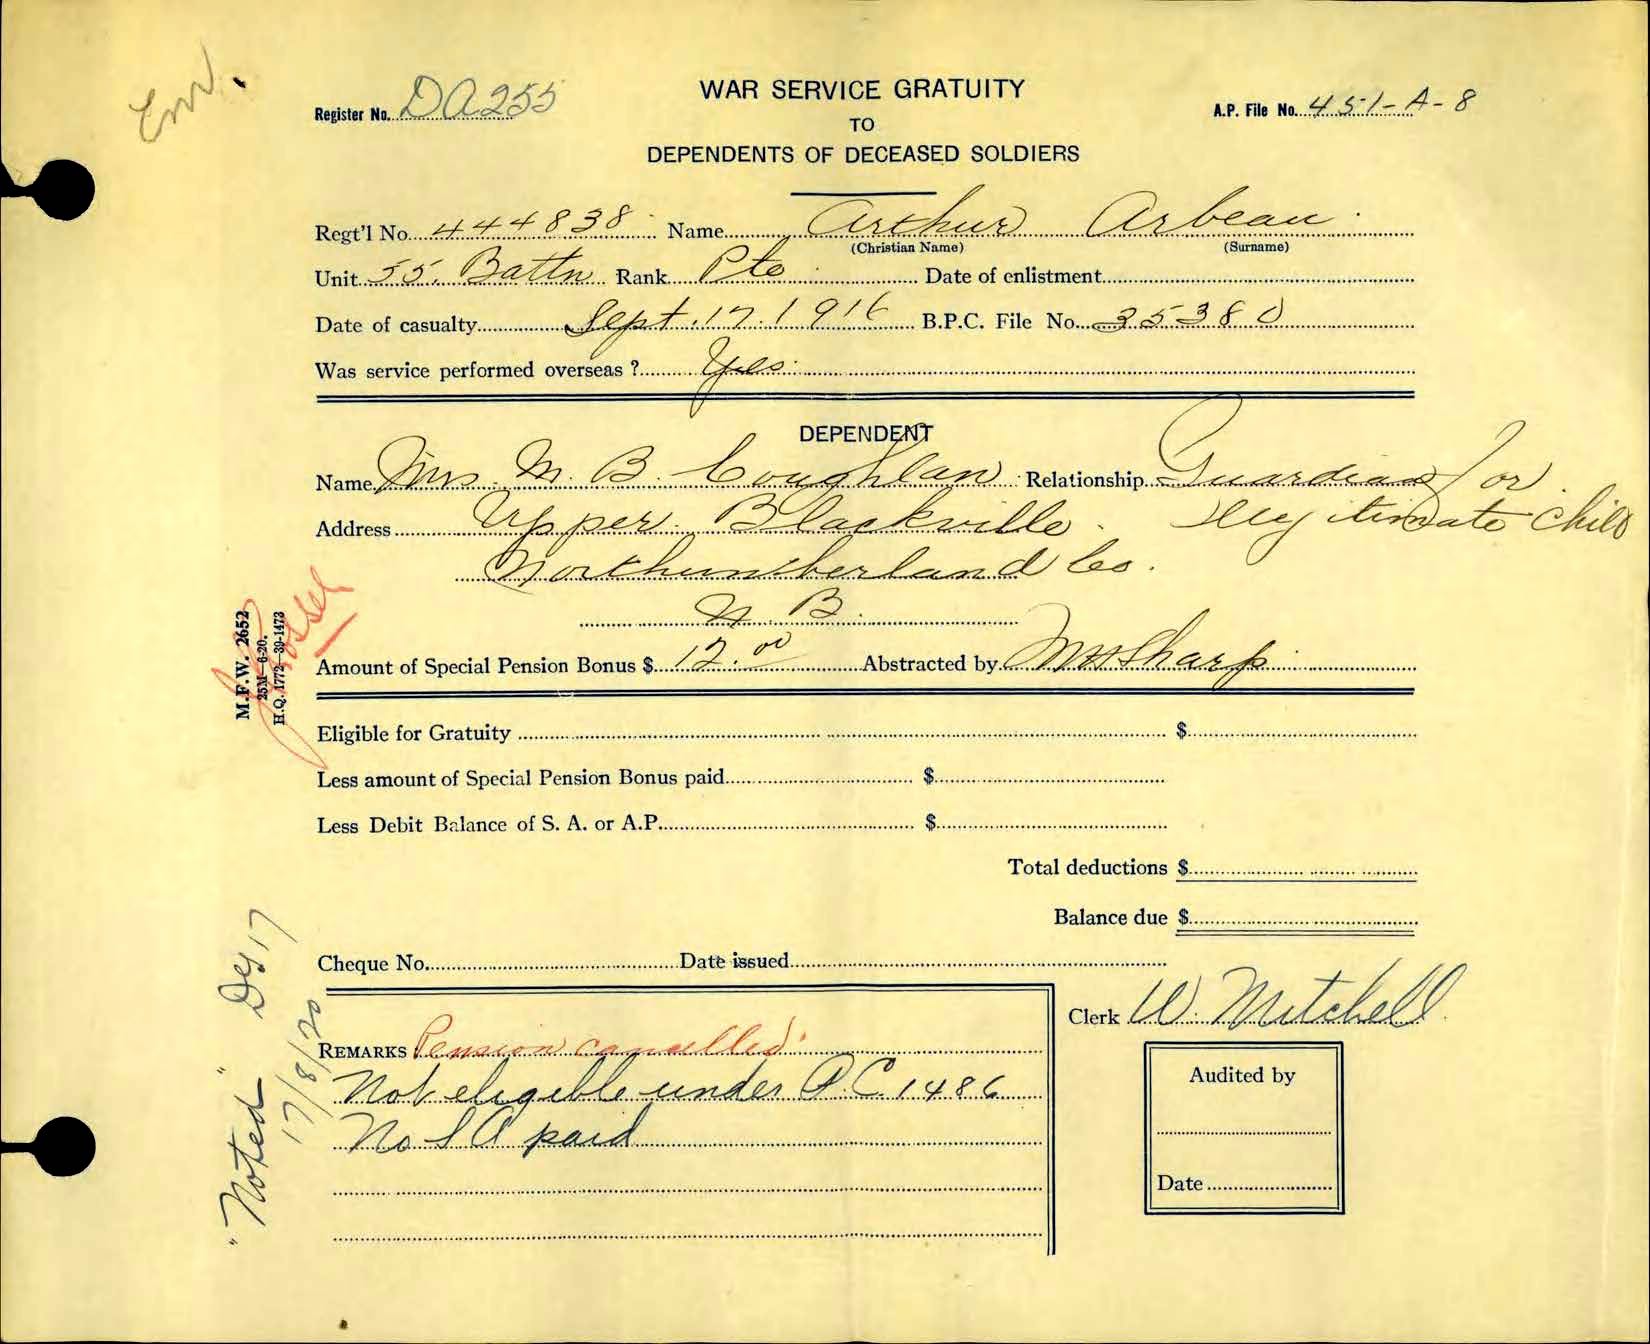 WAR SERVICE GRATUITY
Register No. DA255
A.P. File No. 451-A-8
TO
DEPENDENTS OF DECEASED SOLDIERS
Regt'l No. 444838 Name Arthur Arbeau
(Christian Name) (Surname)
Unit 55. Battn Rank Pte Date of enlistment
Date of casualty Sept. 17. 1916 B.P.C. File No. 35380
Was service performed overseas ? Yes
DEPENDENT
Name Mrs. M. B. Coughlan Relationship Guardian for
Address Upper Blackville. Illegitimate Child
Northumberland Co.
N. B.
Amount of Special Pension Bonus $ 12.00 Abstracted by Sharp
M.F.W. 2652
25M-6-20.
H.Q. 1772-39-1473
Eligible for Gratuity $
Less amount of Special Pension Bonus paid $
Less Debit Balance of S. A. or A.P. $
Total deductions $
Balance due $
Cheque No. Date issued
Clerk W. Mitchell
REMARKS Pension cancelled
Not eligible under P.C. 1486
No S A paid
Audited by
Date
"Noted"
17/8/20